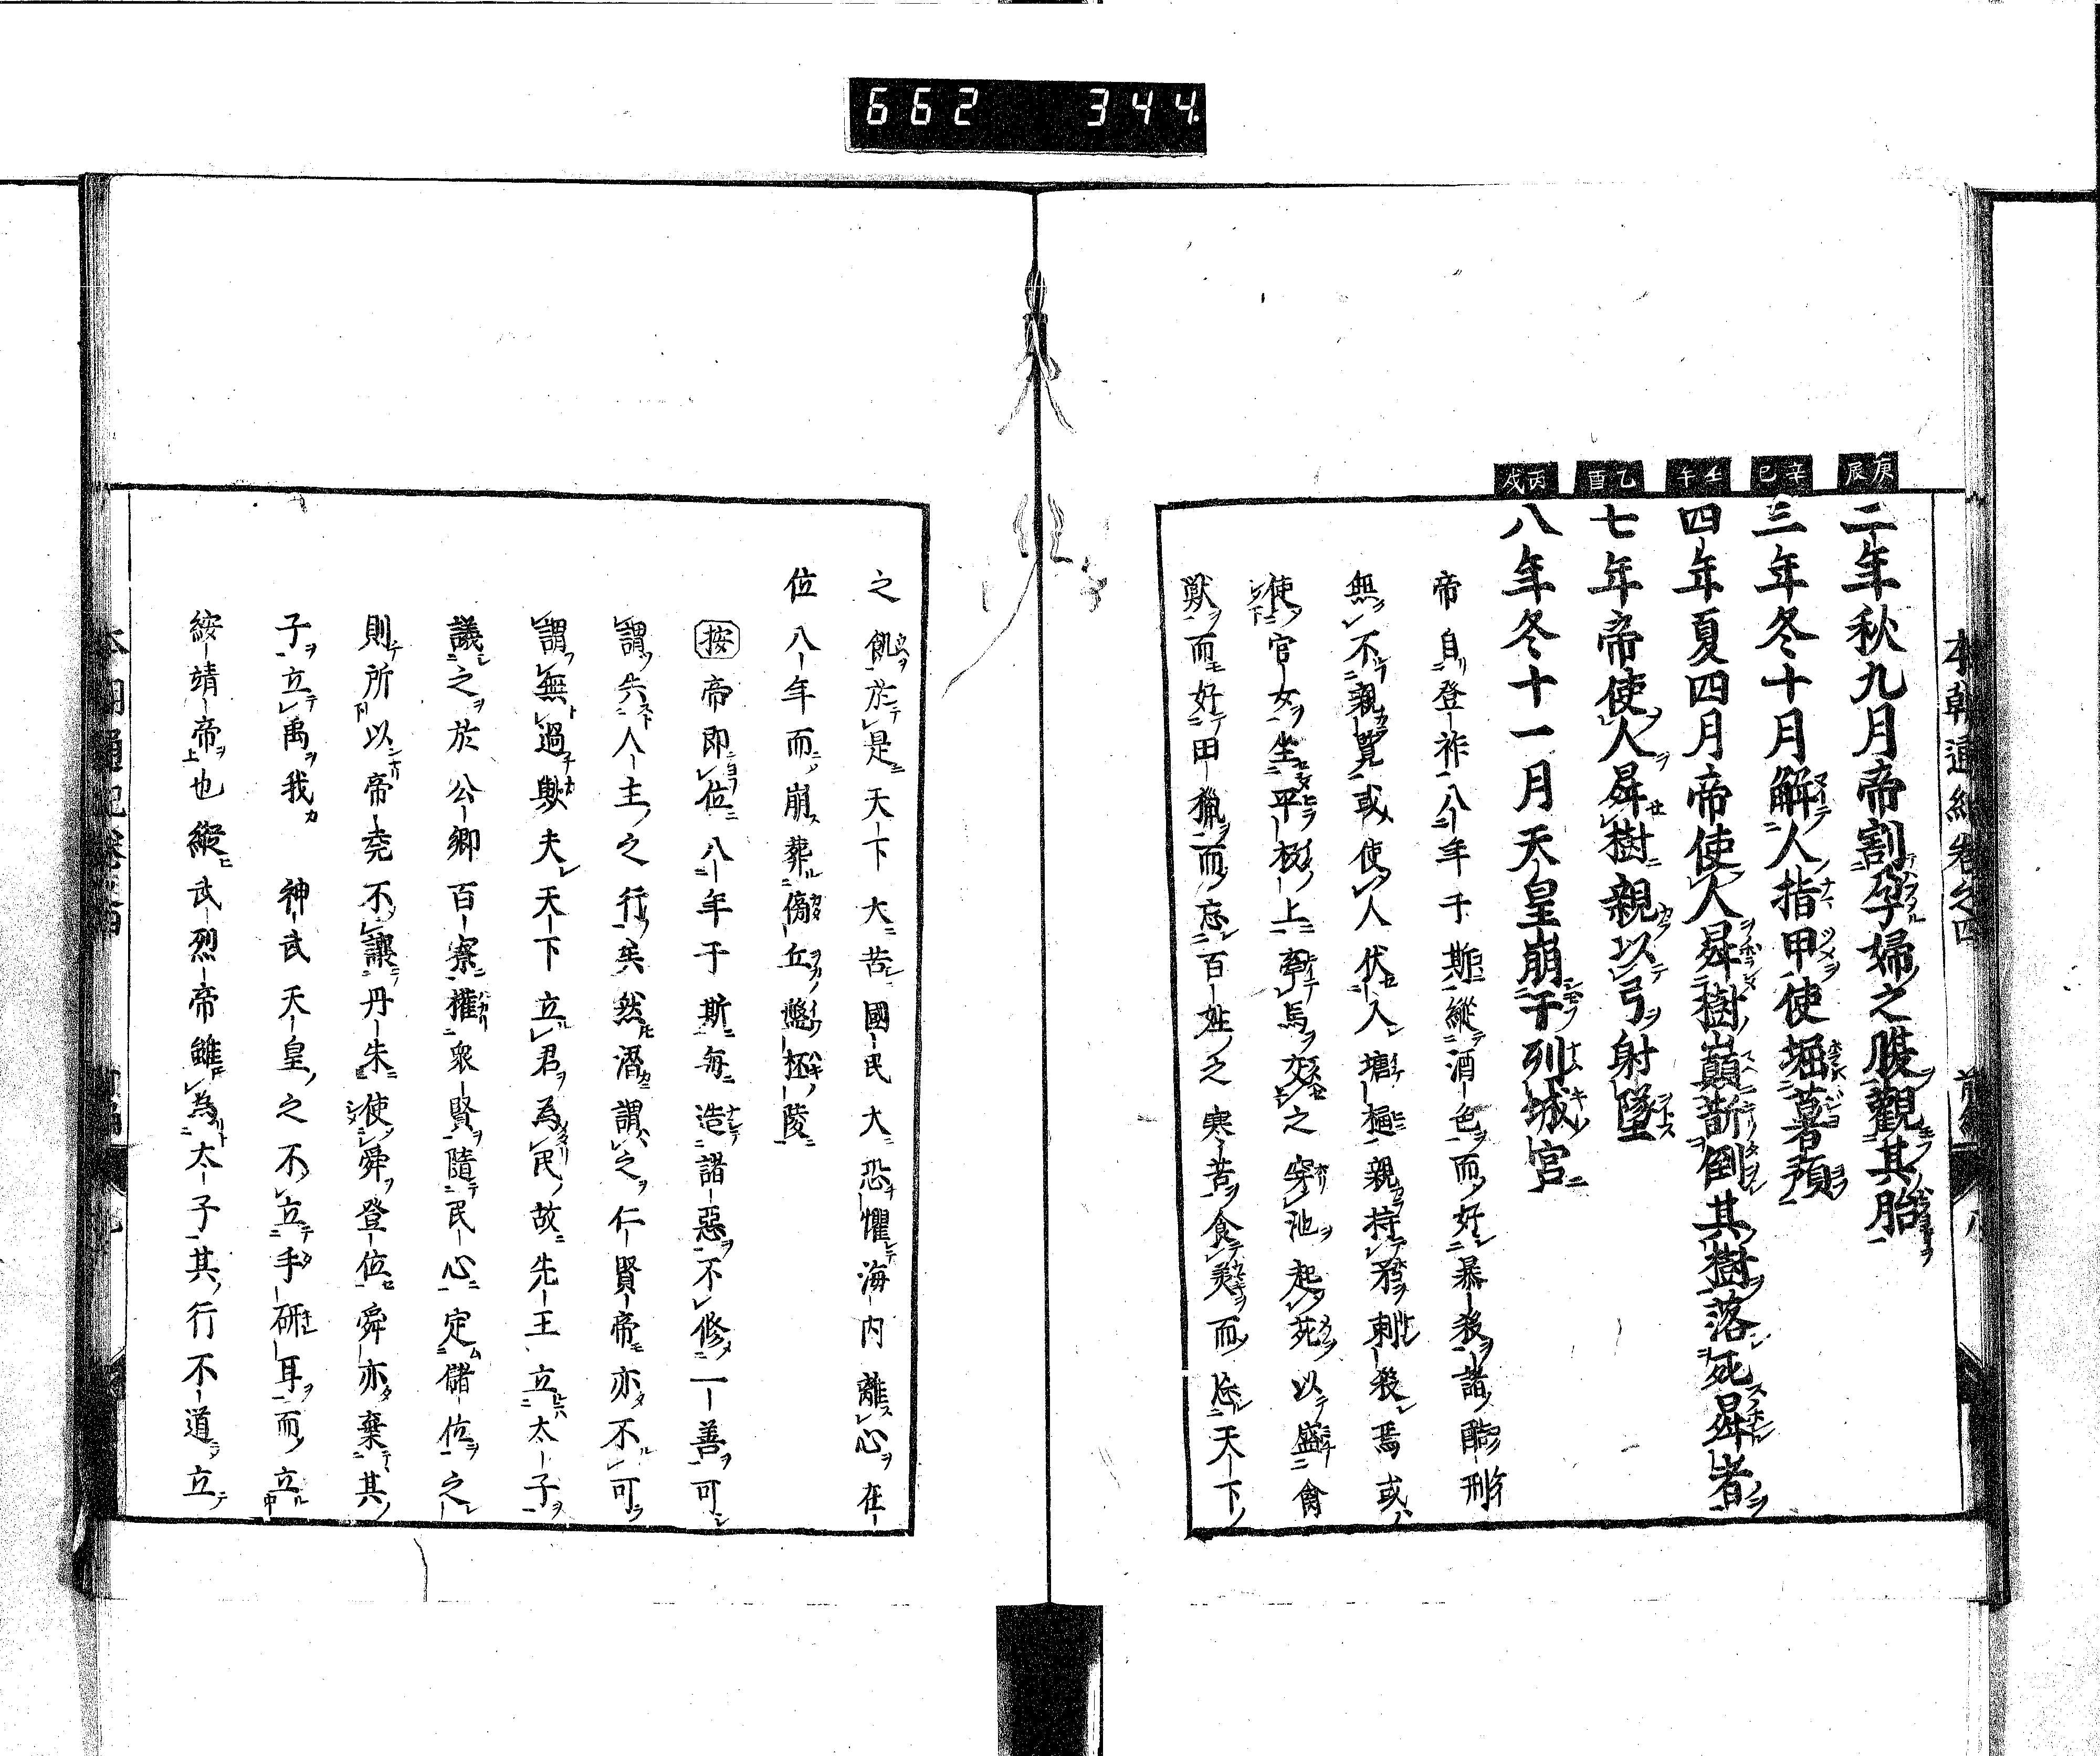 662 344
本朝通紀卷之四 前編 八
庚辰
二年秋九月帝割孕婦之腹觀其胎
辛巳
三年冬十月解人指甲使堀薯蕷
壬午
四年夏四月帝使人昇樹巔斮倒其樹落死昇者
乙酉
七年帝使人昇樹親以弓射墜
丙戌
八年冬十一月天皇崩于列城宮
帝自登祚八年于斯縱酒色而好暴殺諸酷刑
無不親覽或使人伏入塘樋親持矛刺殺焉或
使官女坐平板上牽馬交之穿池起苑以盛禽
獸而好田獵而忘百姓之寒苦食美而忘天下
之飢於是天下大苦國民大恐懼海內離心在
位八年而崩葬傍丘盤坏陵
按帝即位八年于斯每造諸惡不修一善可
謂失人主之行矣然潛謂之仁賢帝亦不可
謂無過歟夫天下立君為民故先王立太子
議之於公卿百寮權衆賢隨民心定儲位之
則所以帝堯不讓丹朱使舜登位舜亦棄其
子立禹我 神武天皇之不立手研耳而立
綏靖帝也縱武烈帝雖為太子其行不道立